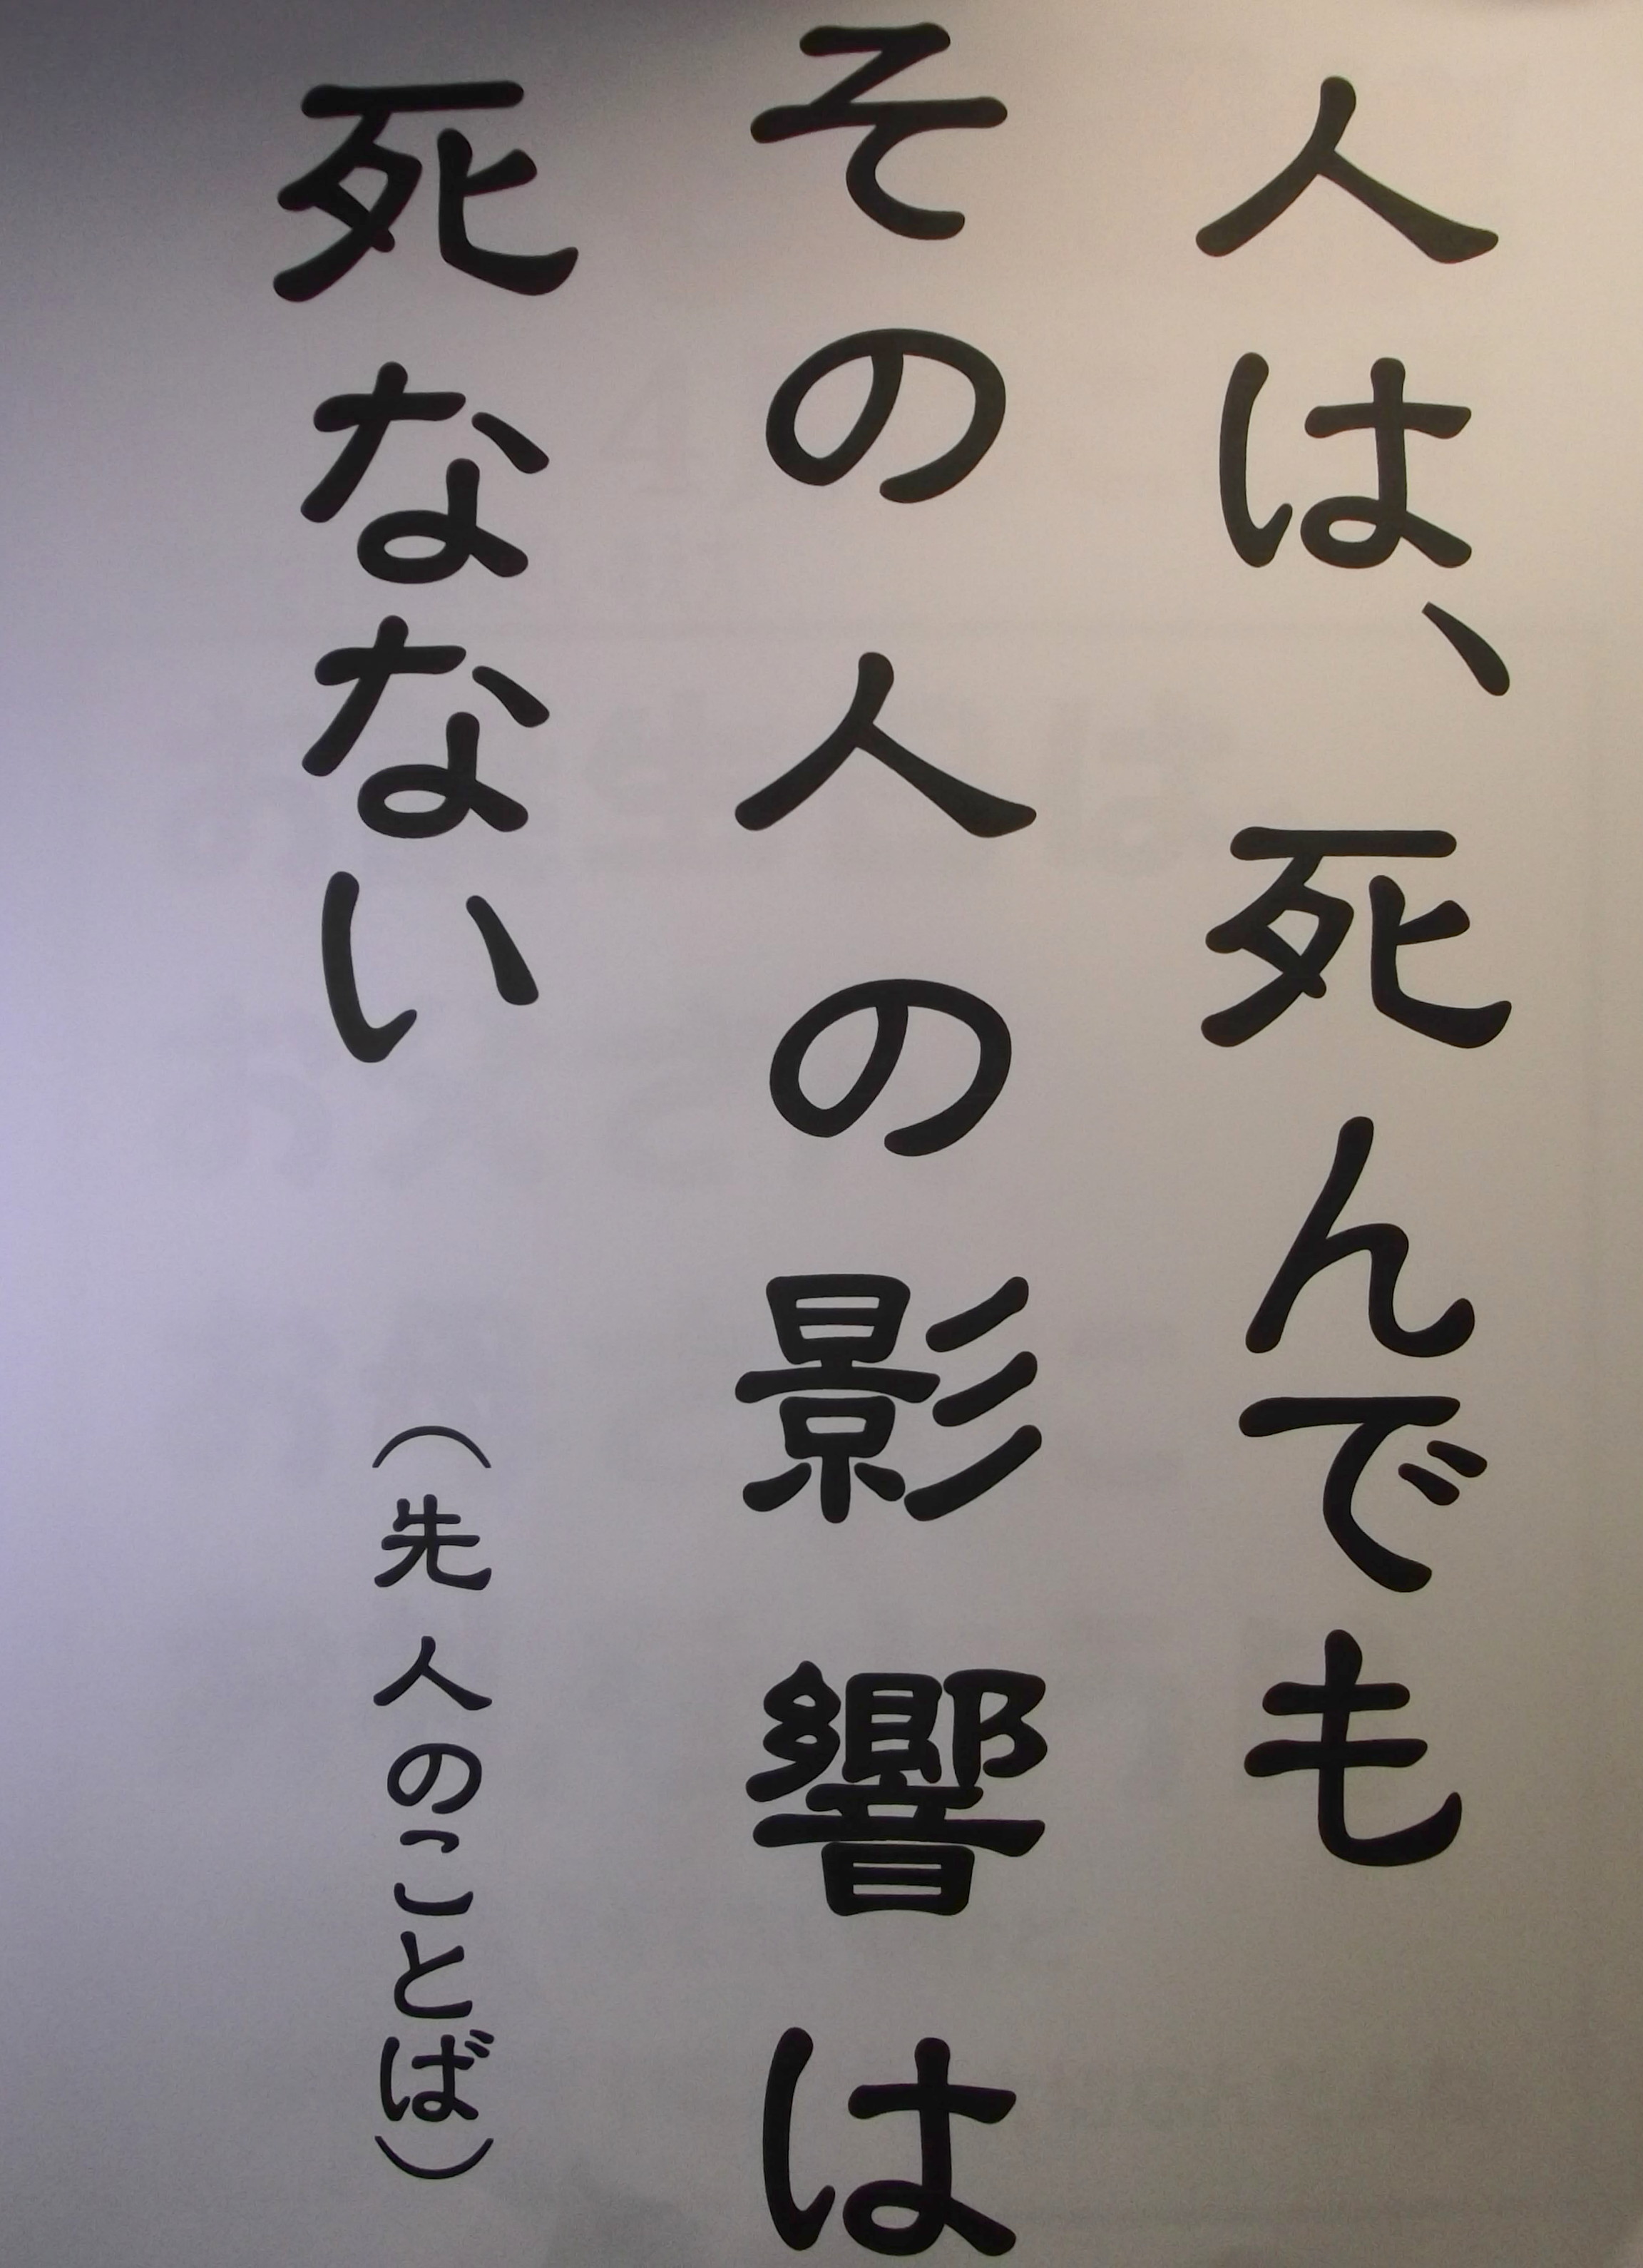 人は、死んでも
その人の影響は
死なない
（先人のことば）